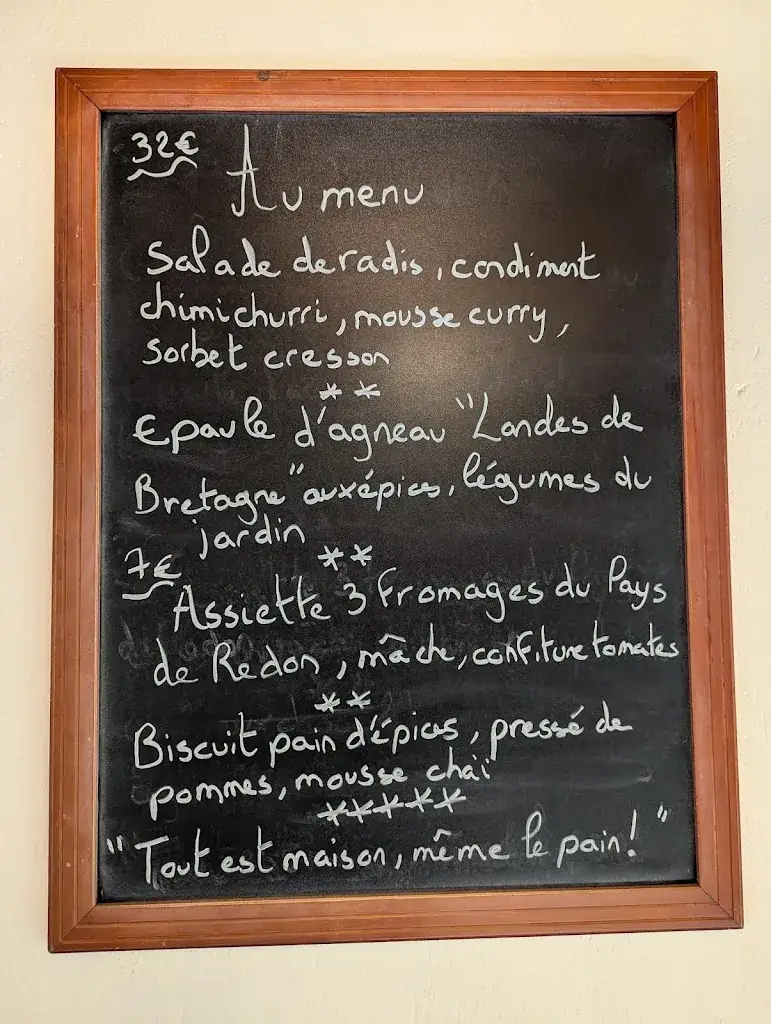 32€
Au menu
Salade de radis, condiment
chimichurri, mousse curry,
sorbet cresson
**
Epaule d'agneau "Landes de
Bretagne" aux épices, légumes du
jardin
**
7€
Assiette 3 Fromages du Pays
de Redon, mâche, confiture tomates
**
Biscuit pain d'épices, pressé de
pommes, mousse chaï
*****
"Tout est maison, même le pain!"